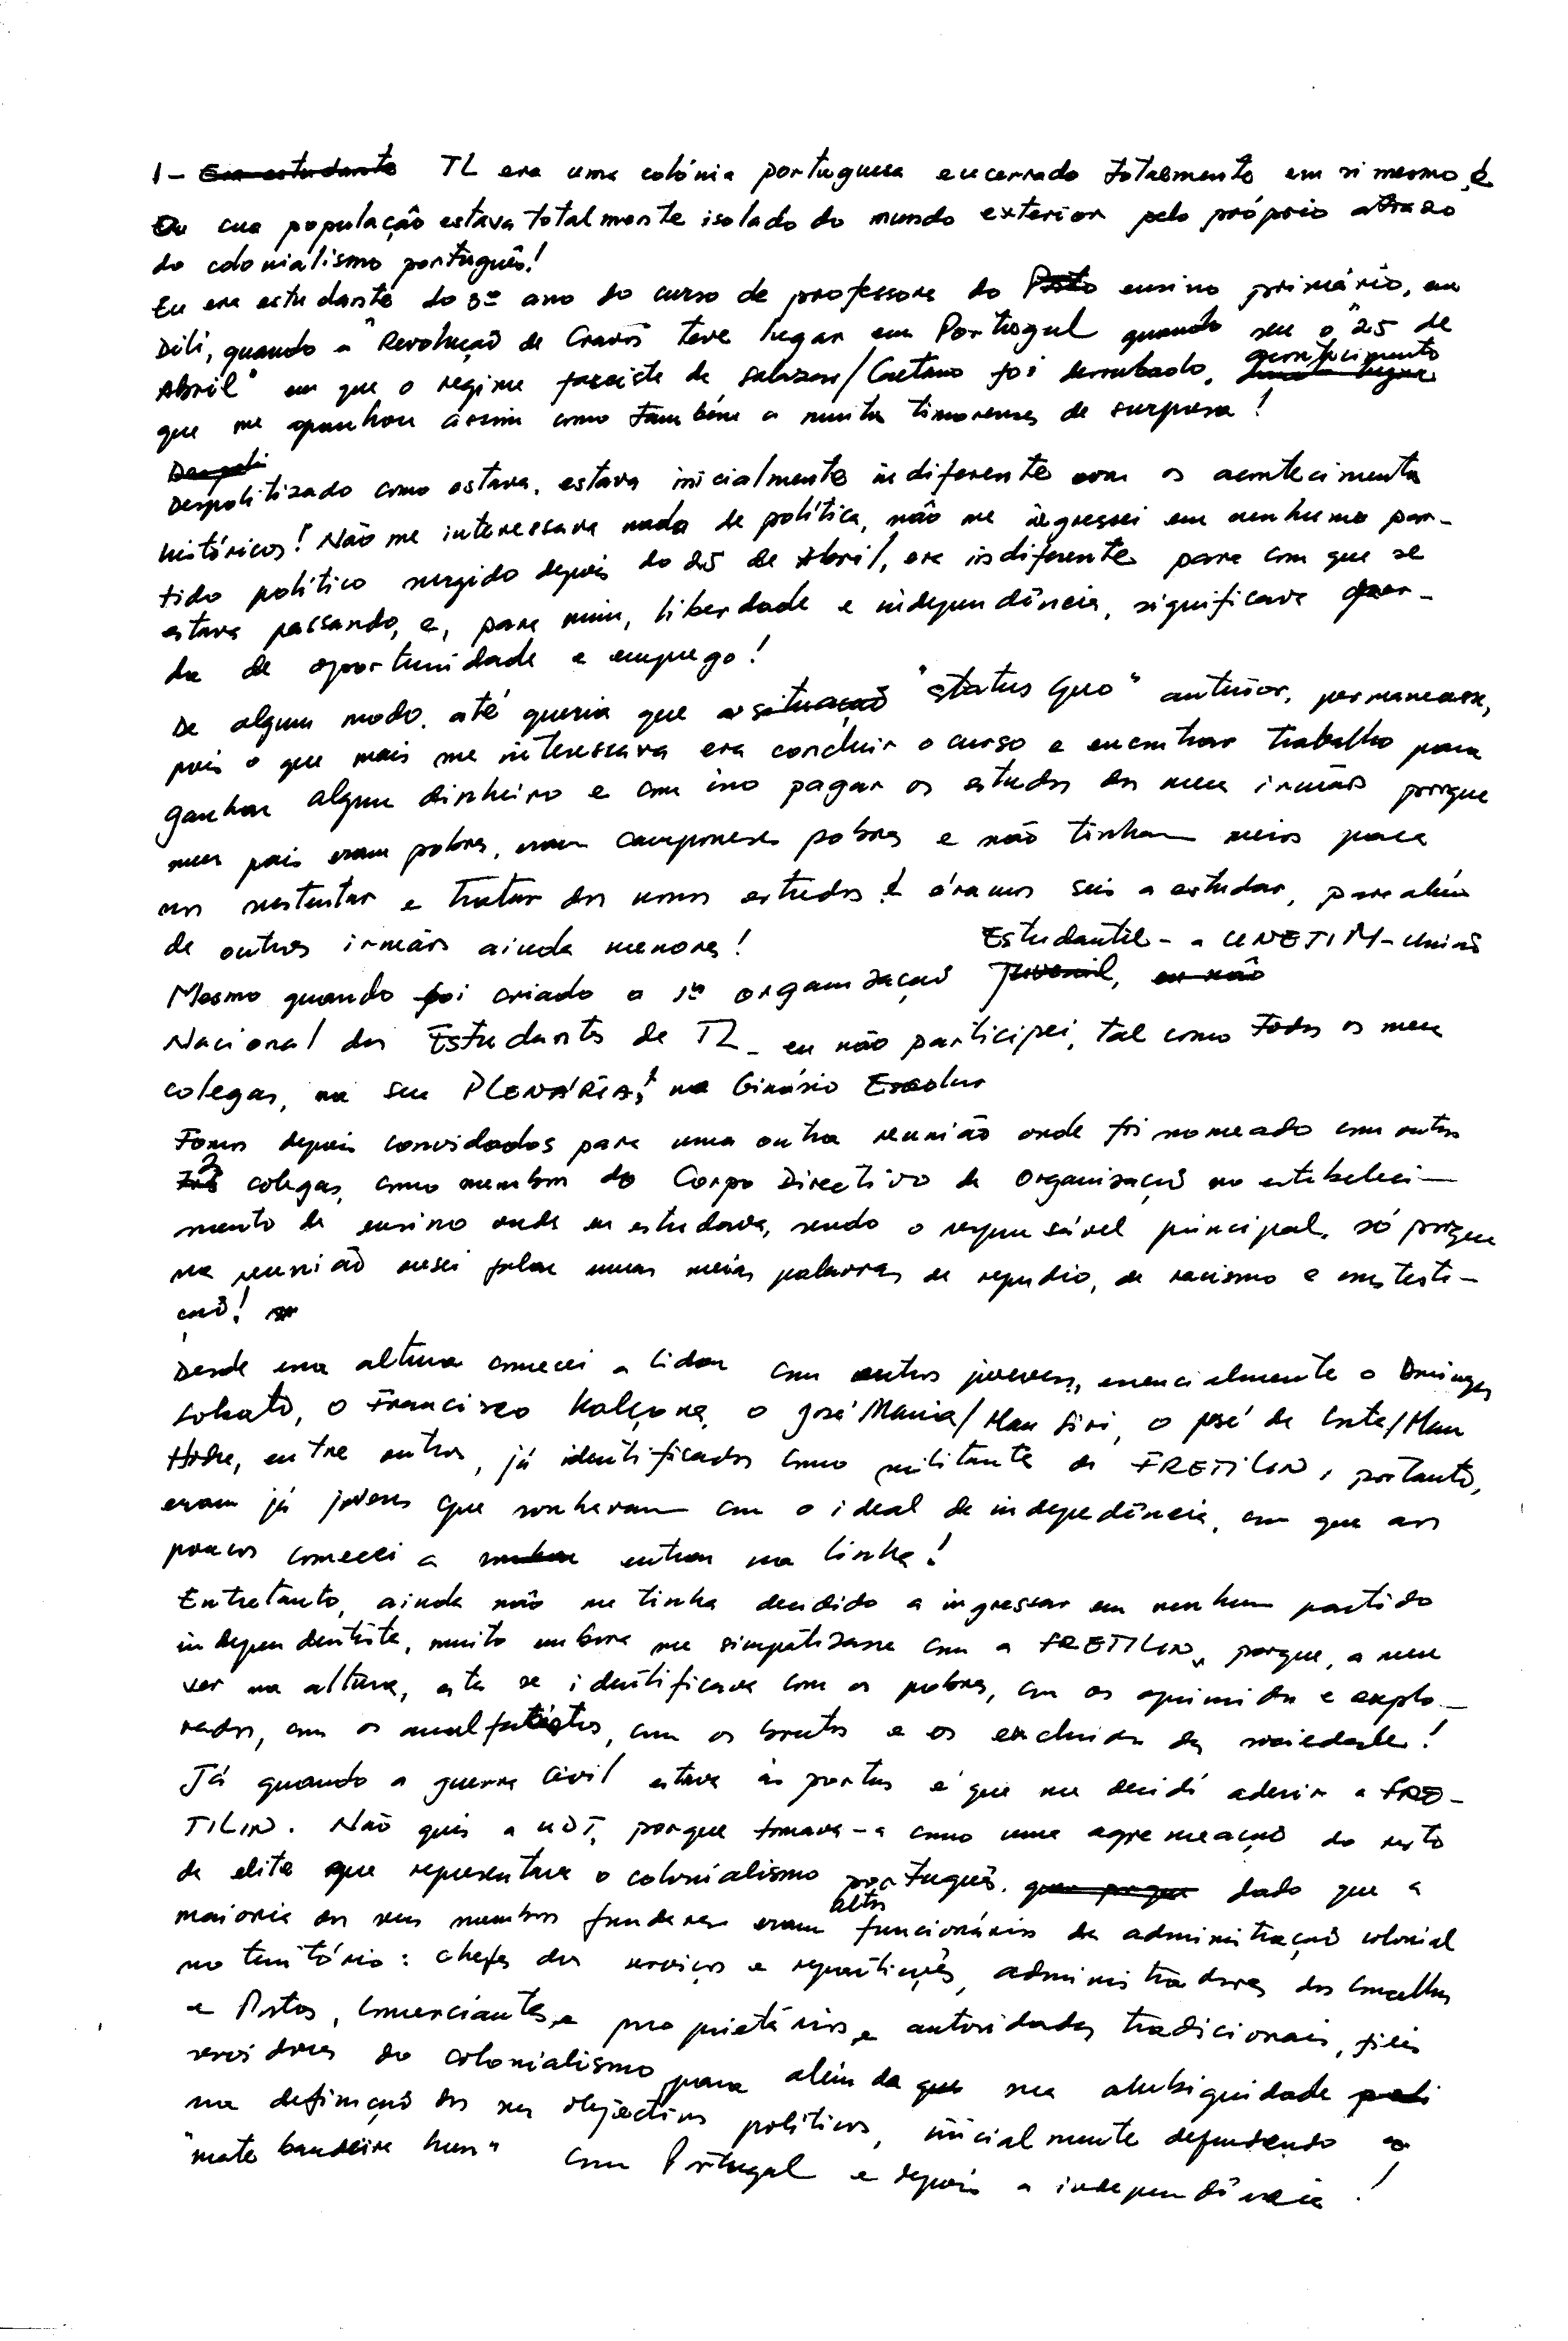 1- Era estudante TL era uma colónia portuguesa encerrado totalmente em si mesmo e
a sua população estava totalmente isolado do mundo exterior pelo próprio atraso
do colonialismo português!
Eu era estudante do 3º ano do curso de professores do Posto ensino primário, em
Dili, quando a "Revolução de Cravos teve lugar em Portugal quando seu o "25 de
Abril" em que o regime fascista de Salazar/Caetano foi derrubado, acontecimento
que me apanhou assim como também a muitos timorenses de surpresa!
Despoli
Despolitizado como estava, estava inicialmente indiferente com os acontecimentos
históricos! Não me interessava nada de política, não me ingressei em nenhumo par-
tido político surgido depois do 25 de Abril, era indiferente para com que se
estava passando, e, para mim, liberdade e independência, significava per-
da de oportunidade e emprego!
De algum modo, até queria que a situação "status quo" anterior, permanecesse,
pois o que mais me interessava era concluir o curso e encontrar trabalho para
ganhar algum dinheiro e com isso pagar os estudos dos meus irmãos porque
meus pais eram pobres, eram camponeses pobres e não tinham meios para
nos sustentar e tratar dos nossos estudos! éramos seis a estudar, para além
de outros irmãos ainda menores!
Mesmo quando foi criado a 1ª organização Juvenil, eu não Estudantil - a UNETIM - União
Nacional dos Estudantes de TL - eu não participei, tal como todos os meus
colegas, na sua PLENÁRIA, no Ginásio Escolar
Fomos depois convidados para uma outra reunião onde fui nomeado com outros
2 colegas, como membros do Corpo Directivo da Organização no estabeleci-
mento de ensino onde eu estudava, sendo o responsável principal, só porque
na reunião ousei falar umas meias palavras de repudio, de racismo e contesta-
ção!
Desde essa altura comecei a lidar com outros jovens, essencialmente o Domingos
Lobato, o Francisco Kalçona, o José Maria/Mau Siri, o José da Costa/Mau
Hodu, entre outros, já identificados como militantes da FRETILIN, portanto,
eram já jovens que sonhavam com o ideal de independência, em que aos
poucos comecei a sonhar entrar na linha!
Entretanto, ainda não me tinha decidido a ingressar em nenhum partido
independentista, muito embora me simpatizasse com a FRETILIN, porque, a meu
ver na altura, esta se identificava com os pobres, com os oprimidos e explo-
rados, com os analfabetos, com os brutos e os excluidos da sociedade!
Já quando a guerra civil estava às portas é que me decidí aderir a FRE-
TILIN. Não quis a UDT, porque tomava-a como uma agremeação do resto
de elite que representava o colonialismo português, dado que a
maioria dos seus membros fundares eram altos funcionários da administração colonial
no território: chefes dos serviços e repartições, administradores dos Concelhos
e Postos, comerciantes e proprietários e autoridades tradicionais, fiéis
servidores do colonialismo para além da sua ambiguidade
na definição dos seus objectivos políticos, inicialmente defendendo o
"mate bandeira hun" com Portugal e depois a independência!